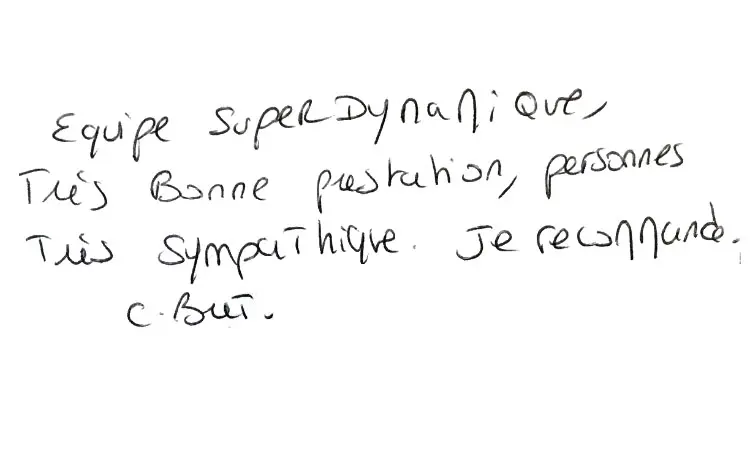 Equipe Super Dynamique,
Très Bonne prestation, personnes
Très Sympathique. Je recommande.
C. But.